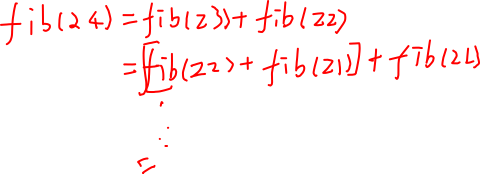 fib(24) = fib(23) + fib(22)
= [fib(22) + fib(21)] + fib(22)
⋮
=